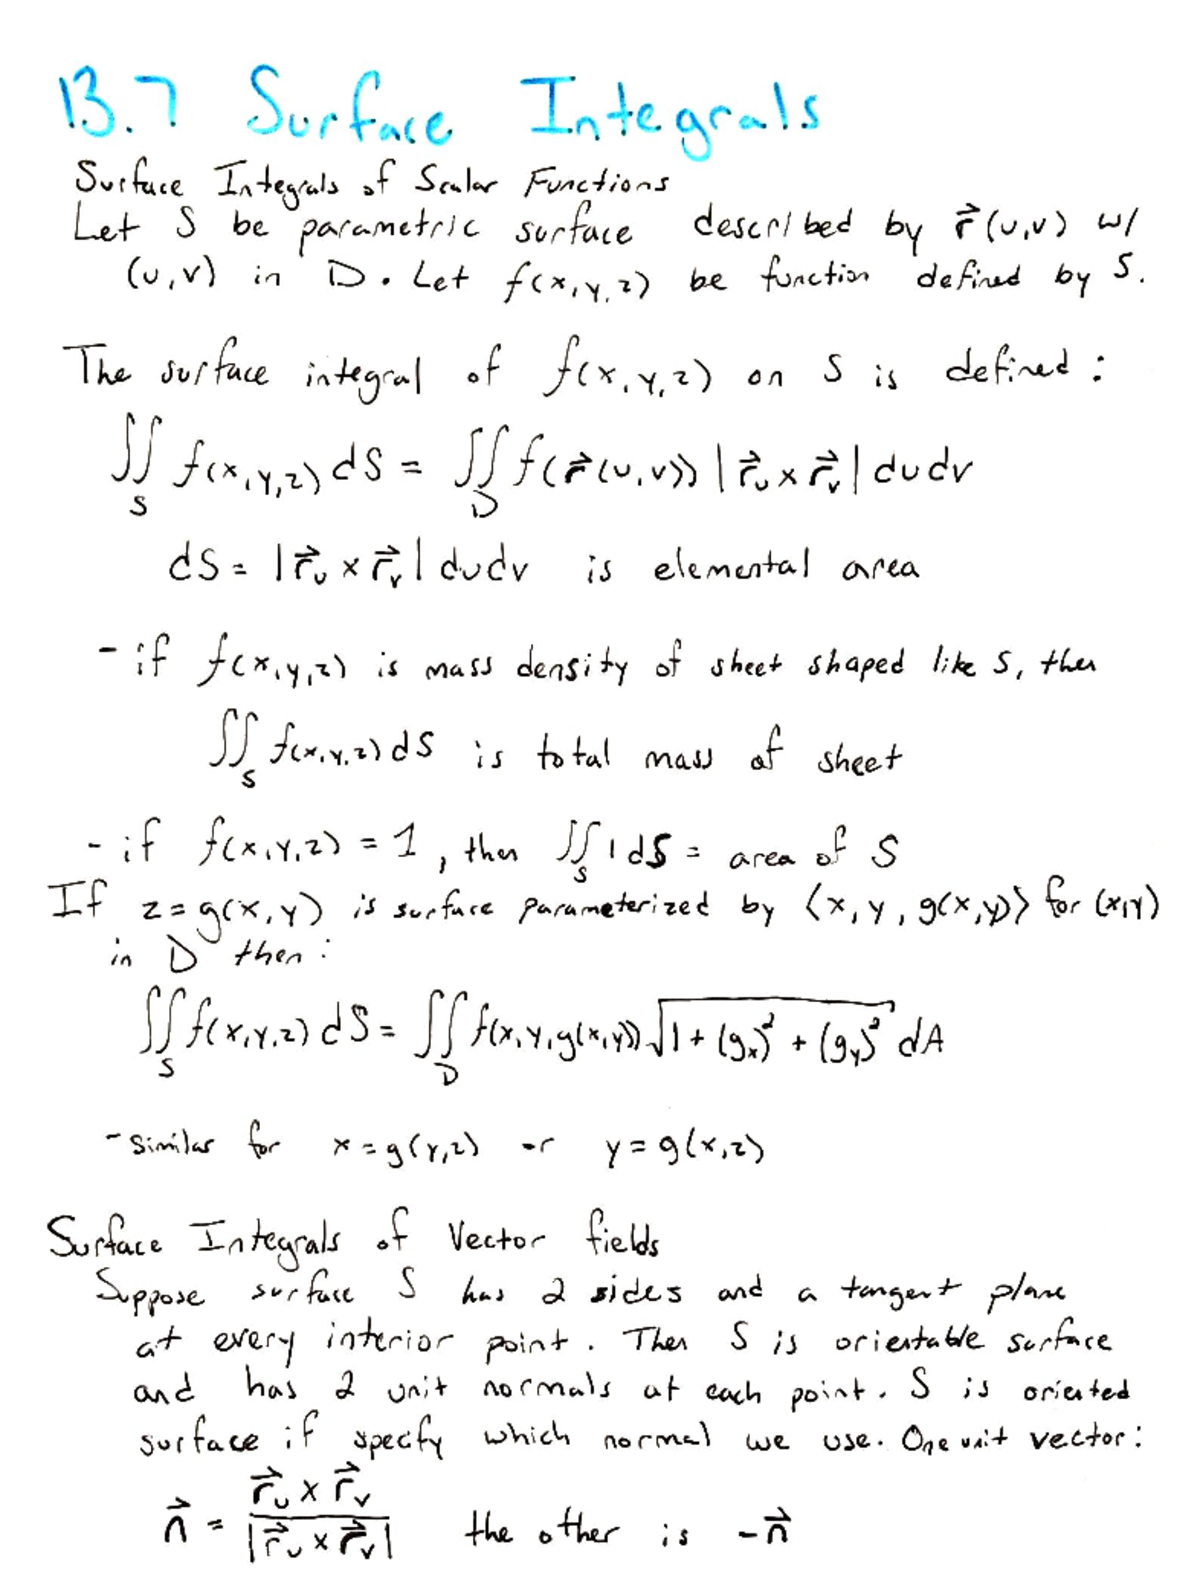 13.7 Surface Integrals
Surface Integrals of Scalar Functions
Let S be parametric surface described by r⃗(u,v) w/
(u,v) in D. Let f(x,y,z) be function defined by S.
The surface integral of f(x,y,z) on S is defined:
∬_S f(x,y,z) dS = ∬_D f(r⃗(u,v)) |r⃗_u × r⃗_v| dudv
dS = |r⃗_u × r⃗_v| dudv is elemental area
- if f(x,y,z) is mass density of sheet shaped like S, then
∬_S f(x,y,z) dS is total mass of sheet
- if f(x,y,z) = 1, then ∬_S 1 dS = area of S
If z = g(x,y) is surface parameterized by ⟨x, y, g(x,y)⟩ for (x,y)
in D then:
∬_S f(x,y,z) dS = ∬_D f(x,y,g(x,y)) √(1 + (g_x)² + (g_y)²) dA
- similar for x = g(y,z) or y = g(x,z)
Surface Integrals of Vector fields
Suppose surface S has 2 sides and a tangent plane
at every interior point. Then S is orientable surface
and has 2 unit normals at each point. S is oriented
surface if specfy which normal we use. One unit vector:
n⃗ = (r⃗_u × r⃗_v) / |r⃗_u × r⃗_v| the other is -n⃗